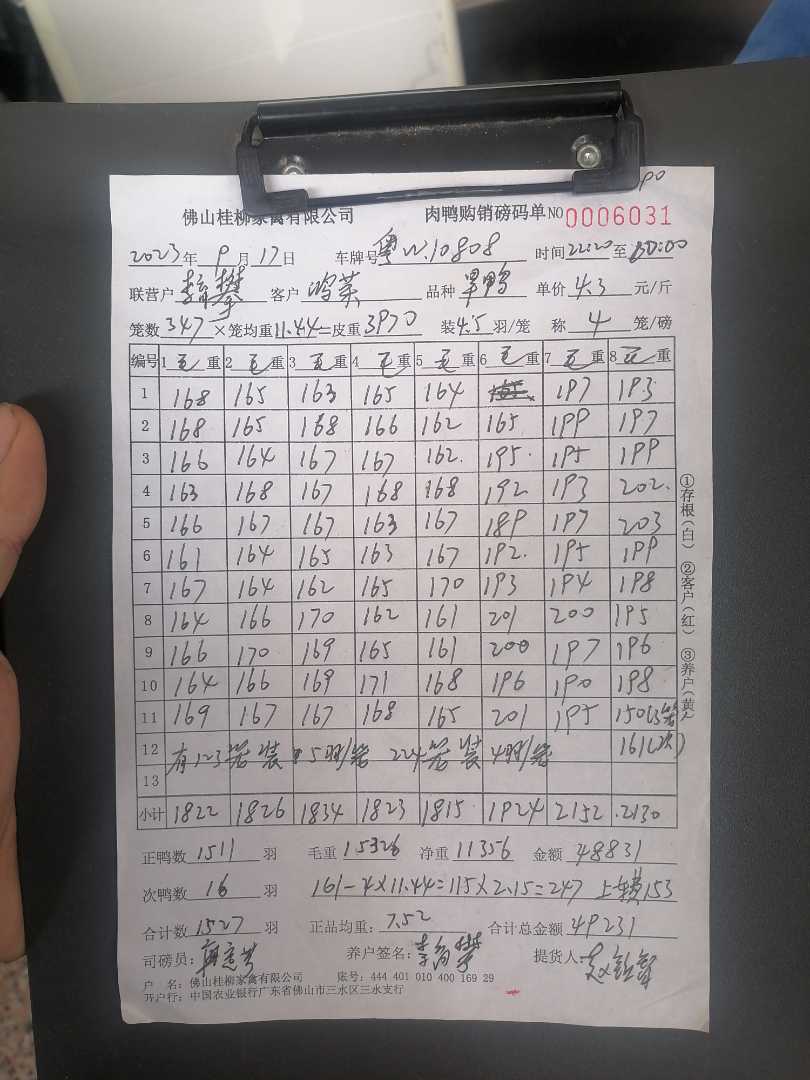 佛山桂柳家禽有限公司 肉鸭购销磅码单 NO 0006031
2023年 9月 17日 车牌号 粤W.10808 时间 22:20 至 00:00
联营户 客户 鸿英 品种 旱鸭 单价 4.3 元/斤
笼数 347 ×笼均重 11.44 =皮重 3970 装 4.5 羽/笼 称 4 笼/磅
编号 1 毛重 2 毛重 3 毛重 4 毛重 5 毛重 6 毛重 7 毛重 8 毛重
1 168 165 163 165 164 165 197 193
2 168 165 168 166 162 165 199 197
3 166 164 167 167 162. 195. 195 199
4 163 168 167 168 168 192 193 202.
5 166 167 167 163 167 189 197 203
6 161 164 165 163 167 192. 195 199
7 167 164 162 165 170 193 194 198
8 164 166 170 162 161 201 200 195
9 166 170 169 165 161 200 197 196
10 164 166 169 171 168 196 190 198
11 169 167 167 168 165 201 195 150(3笼
12 有123笼装5羽/笼 224笼装4羽/笼 161(次)
13
小计 1822 1826 1834 1823 1815 1924 2152 2130
正鸭数 1511 羽 毛重 15326 净重 11356 金额 48831
次鸭数 16 羽 161-4×11.44=115×2.15=247 上车费153
合计数 1527 羽 正品均重: 7.52 合计总金额 49231
司磅员: 养户签名: 提货人:
户 名: 佛山桂柳家禽有限公司 账号: 444 401 010 400 169 29
开户行: 中国农业银行广东省佛山市三水区三水支行
①存根(白) ②客户(红) ③养户(黄